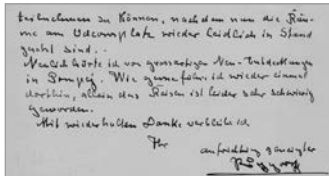 teilnehmen zu können, nachdem nun die Räu-
me am Odeonsplatz wieder leidlich in Stand
gesetzt sind. -
Neulich hörte ich von grossartigen Neu-Entdeckungen
in Pompej. Wie gerne führe ich wieder einmal
dorthin, allein das Reisen ist leider sehr schwierig
geworden.
Mit wiederholtem Danke verbleibe ich
Ihr aufrichtig geneigter